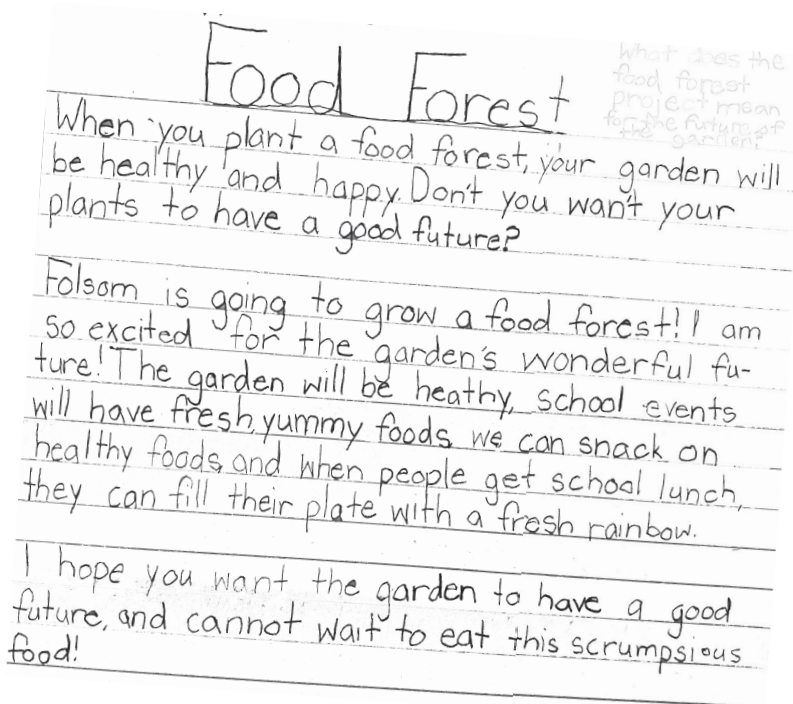 Food Forest
What does the
food forest
project mean
for the future of
the garden?
When you plant a food forest, your garden will
be healthy and happy. Don't you wan't your
plants to have a good future?
Folsom is going to grow a food forest! I am
so excited for the garden's wonderful fu-
ture! The garden will be heathy, school events
will have fresh, yummy foods, we can snack on
healthy foods, and when people get school lunch,
they can fill their plate with a fresh rainbow.
I hope you want the garden to have a good
future, and cannot wait to eat this scrumpsious
food!